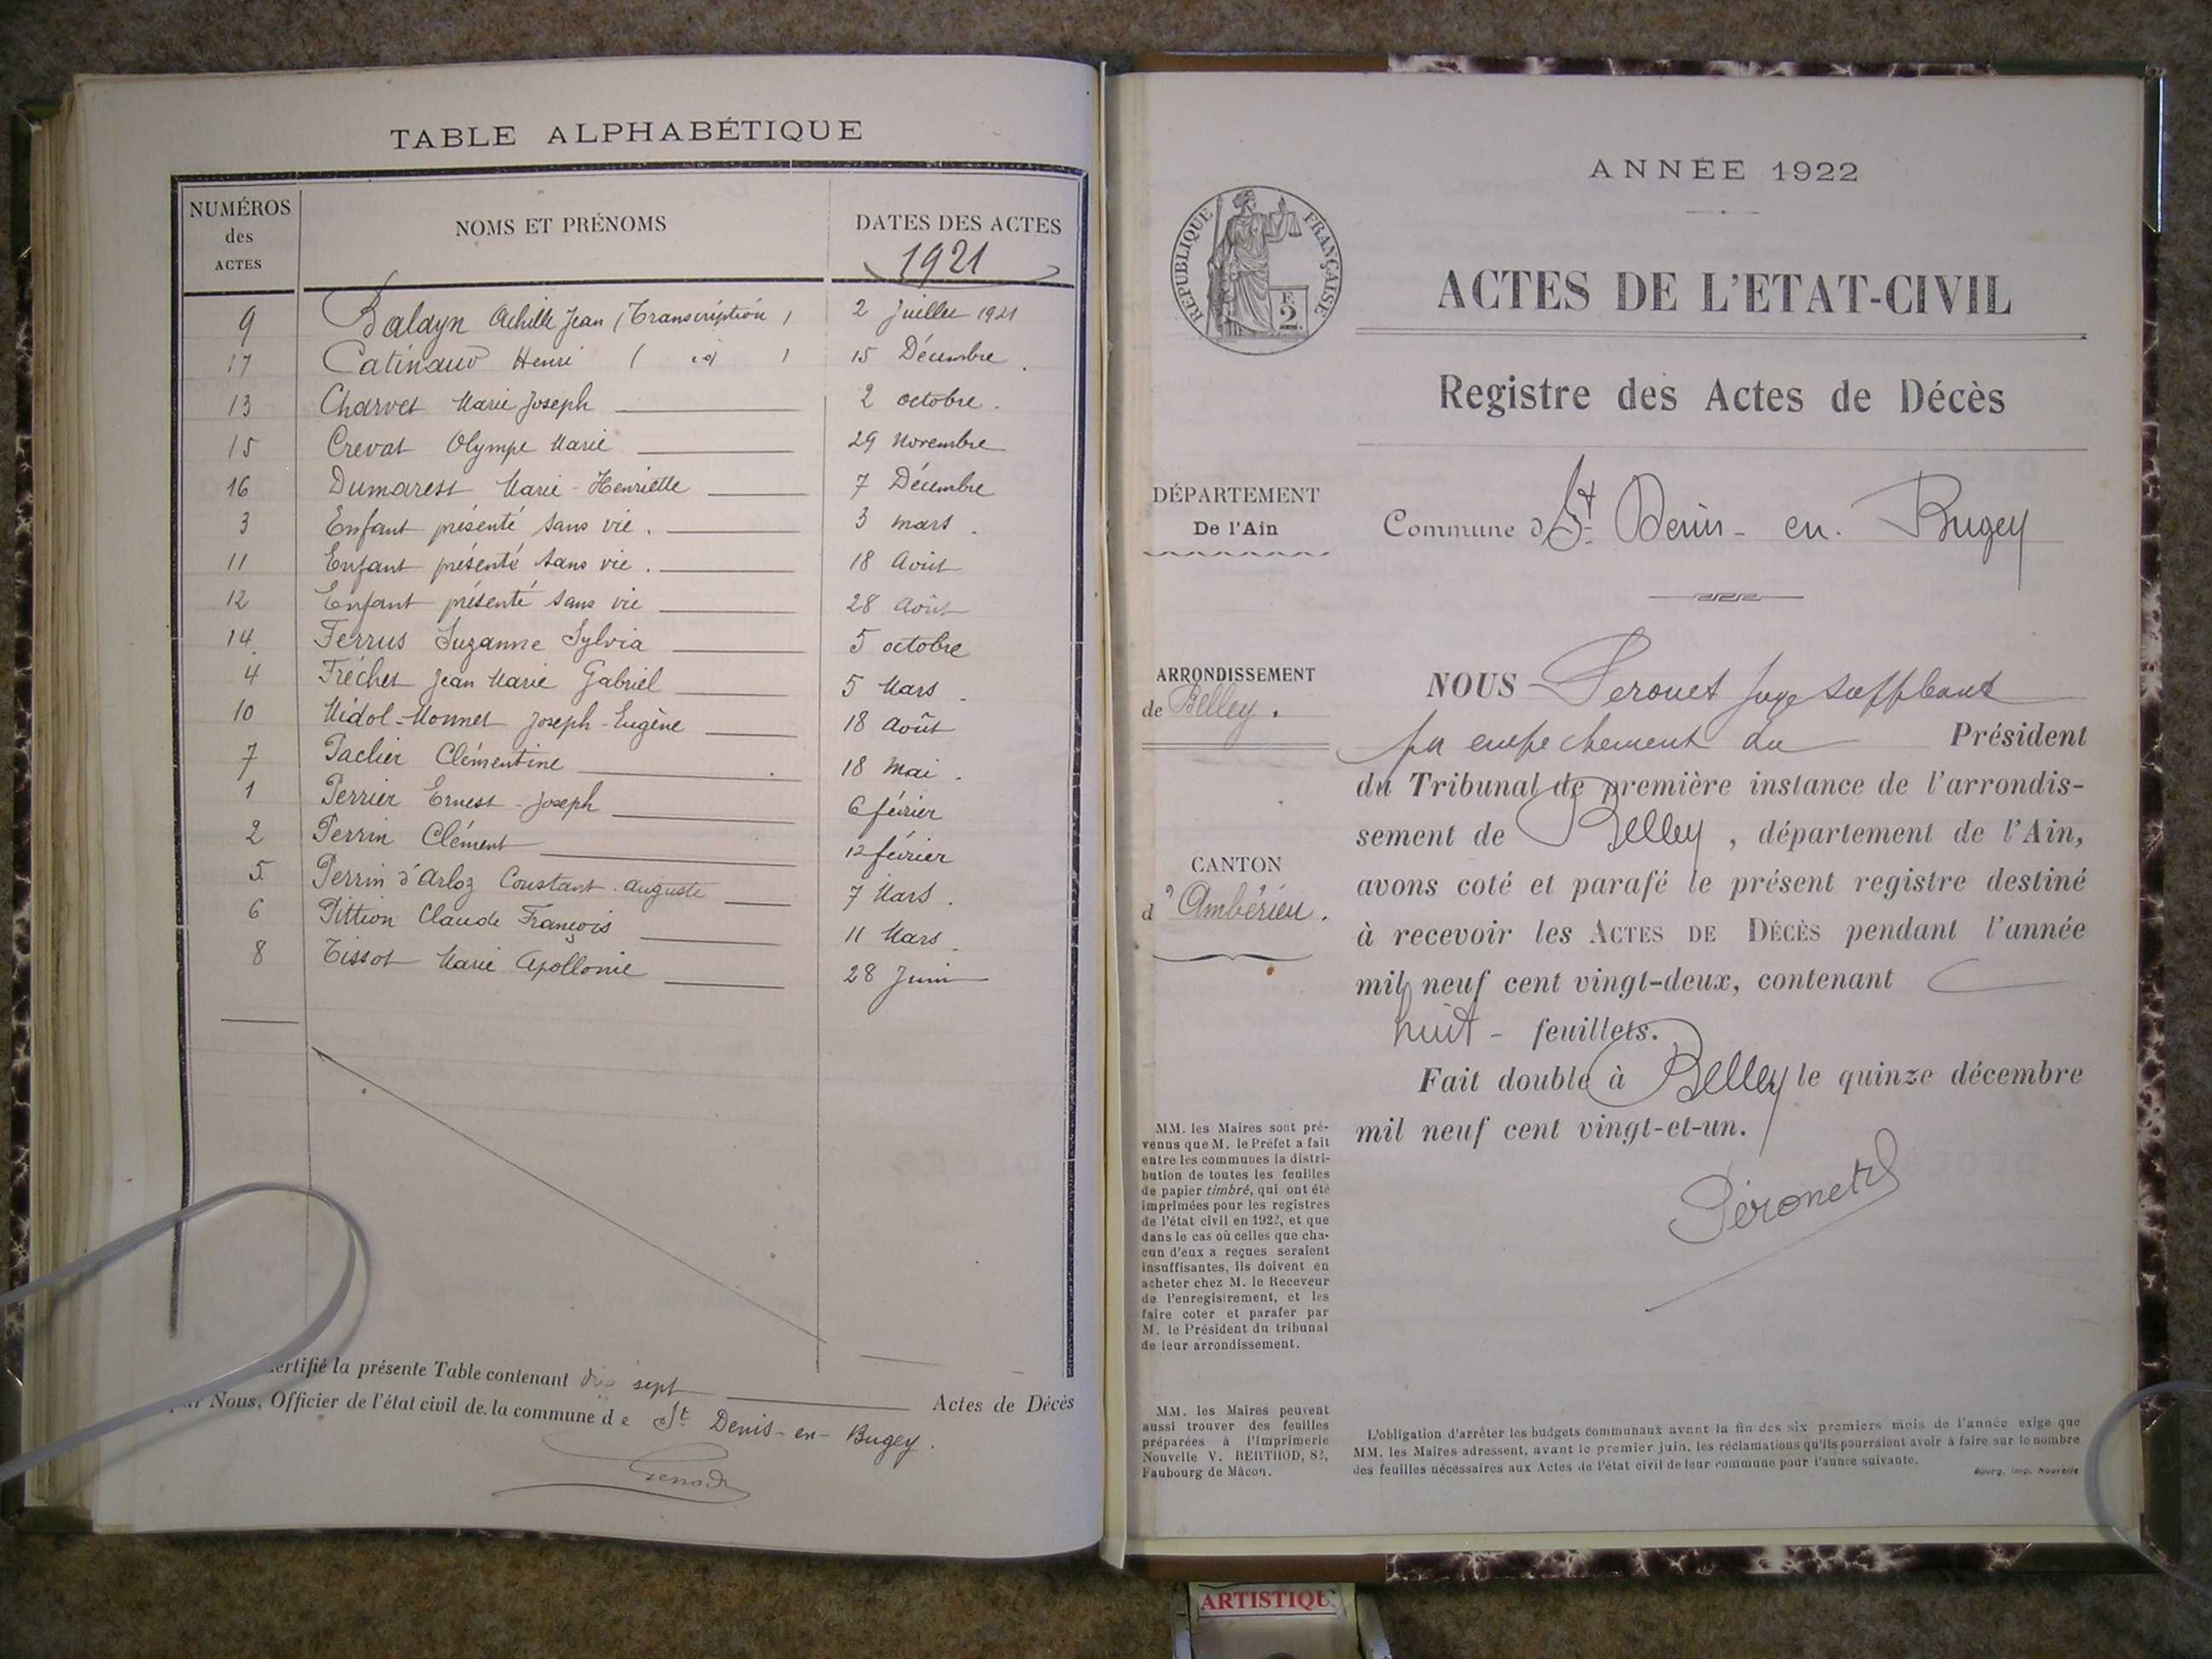 TABLE ALPHABÉTIQUE
NUMÉROS des ACTES
NOMS ET PRÉNOMS
DATES DES ACTES
1921
9 Baldyn Achille Jean (Transcription) 2 Juillet 1921
17 Catinaud Henri ( id ) 15 Décembre.
13 Charvet Marie Joseph 2 octobre.
15 Crevat Olympe Marie 29 Novembre
16 Dumarest Marie-Henriette 7 Décembre
3 Enfant présenté sans vie. 3 mars.
11 Enfant présenté sans vie. 18 Août
12 Enfant présenté sans vie 28 Août
14. Ferrus Suzanne Sylvia 5 octobre
4 Fréchet Jean Marie Gabriel 5 Mars.
10 Midol-Monnet Joseph-Eugène 18 Août
7 Paclier Clémentine 18 Mai.
1 Perrier Ernest-Joseph 6 février
2 Perrin Clément 12 février
5. Perrin d'Arloz Constant. Auguste 7 Mars.
6 Pittion Claude François 11 Mars.
8 Tissot Marie Apollonie 28 Juin
ertifié la présente Table contenant dix sept Actes de Décès
par Nous, Officier de l'état civil de la commune de St Denis-en-Bugey.
ANNÉE 1922
RÉPUBLIQUE FRANÇAISE
2
ACTES DE L'ETAT-CIVIL
Registre des Actes de Décès
DÉPARTEMENT
De l'Ain
Commune d St Denis-en-Bugey
ARRONDISSEMENT
de Belley.
CANTON
d'Ambérieu.
NOUS Peronet Juge suppléant
par empechement du Président
du Tribunal de première instance de l'arrondis-
sement de Belley, département de l'Ain,
avons coté et parafé le présent registre destiné
à recevoir les ACTES DE DÉCÈS pendant l'année
mil neuf cent vingt-deux, contenant
huit - feuillets.
Fait double à Belley le quinze décembre
mil neuf cent vingt-et-un.
Péronet
MM. les Maires sont pré-
venus que M. le Préfet a fait
entre les communes la distri-
bution de toutes les feuilles
de papier timbré, qui ont été
imprimées pour les registres
de l'état civil en 1922, et que
dans le cas où celles que cha-
cun d'eux a reçues seraient
insuffisantes, ils doivent en
acheter chez M. le Receveur
de l'enregistrement, et les
faire coter et parafer par
M. le Président du tribunal
de leur arrondissement.
MM. les Maires peuvent
aussi trouver des feuilles
préparées à l'Imprimerie
Nouvelle V. BERTHOD, 82,
Faubourg de Mâcon.
L'obligation d'arrêter les budgets communaux avant la fin des six premiers mois de l'année exige que
MM. les Maires adressent, avant le premier juin, les réclamations qu'ils pourraient avoir à faire sur le nombre
des feuilles nécessaires aux Actes de l'état civil de leur commune pour l'année suivante.
Bourg, imp. Nouvelle
ARTISTIQU